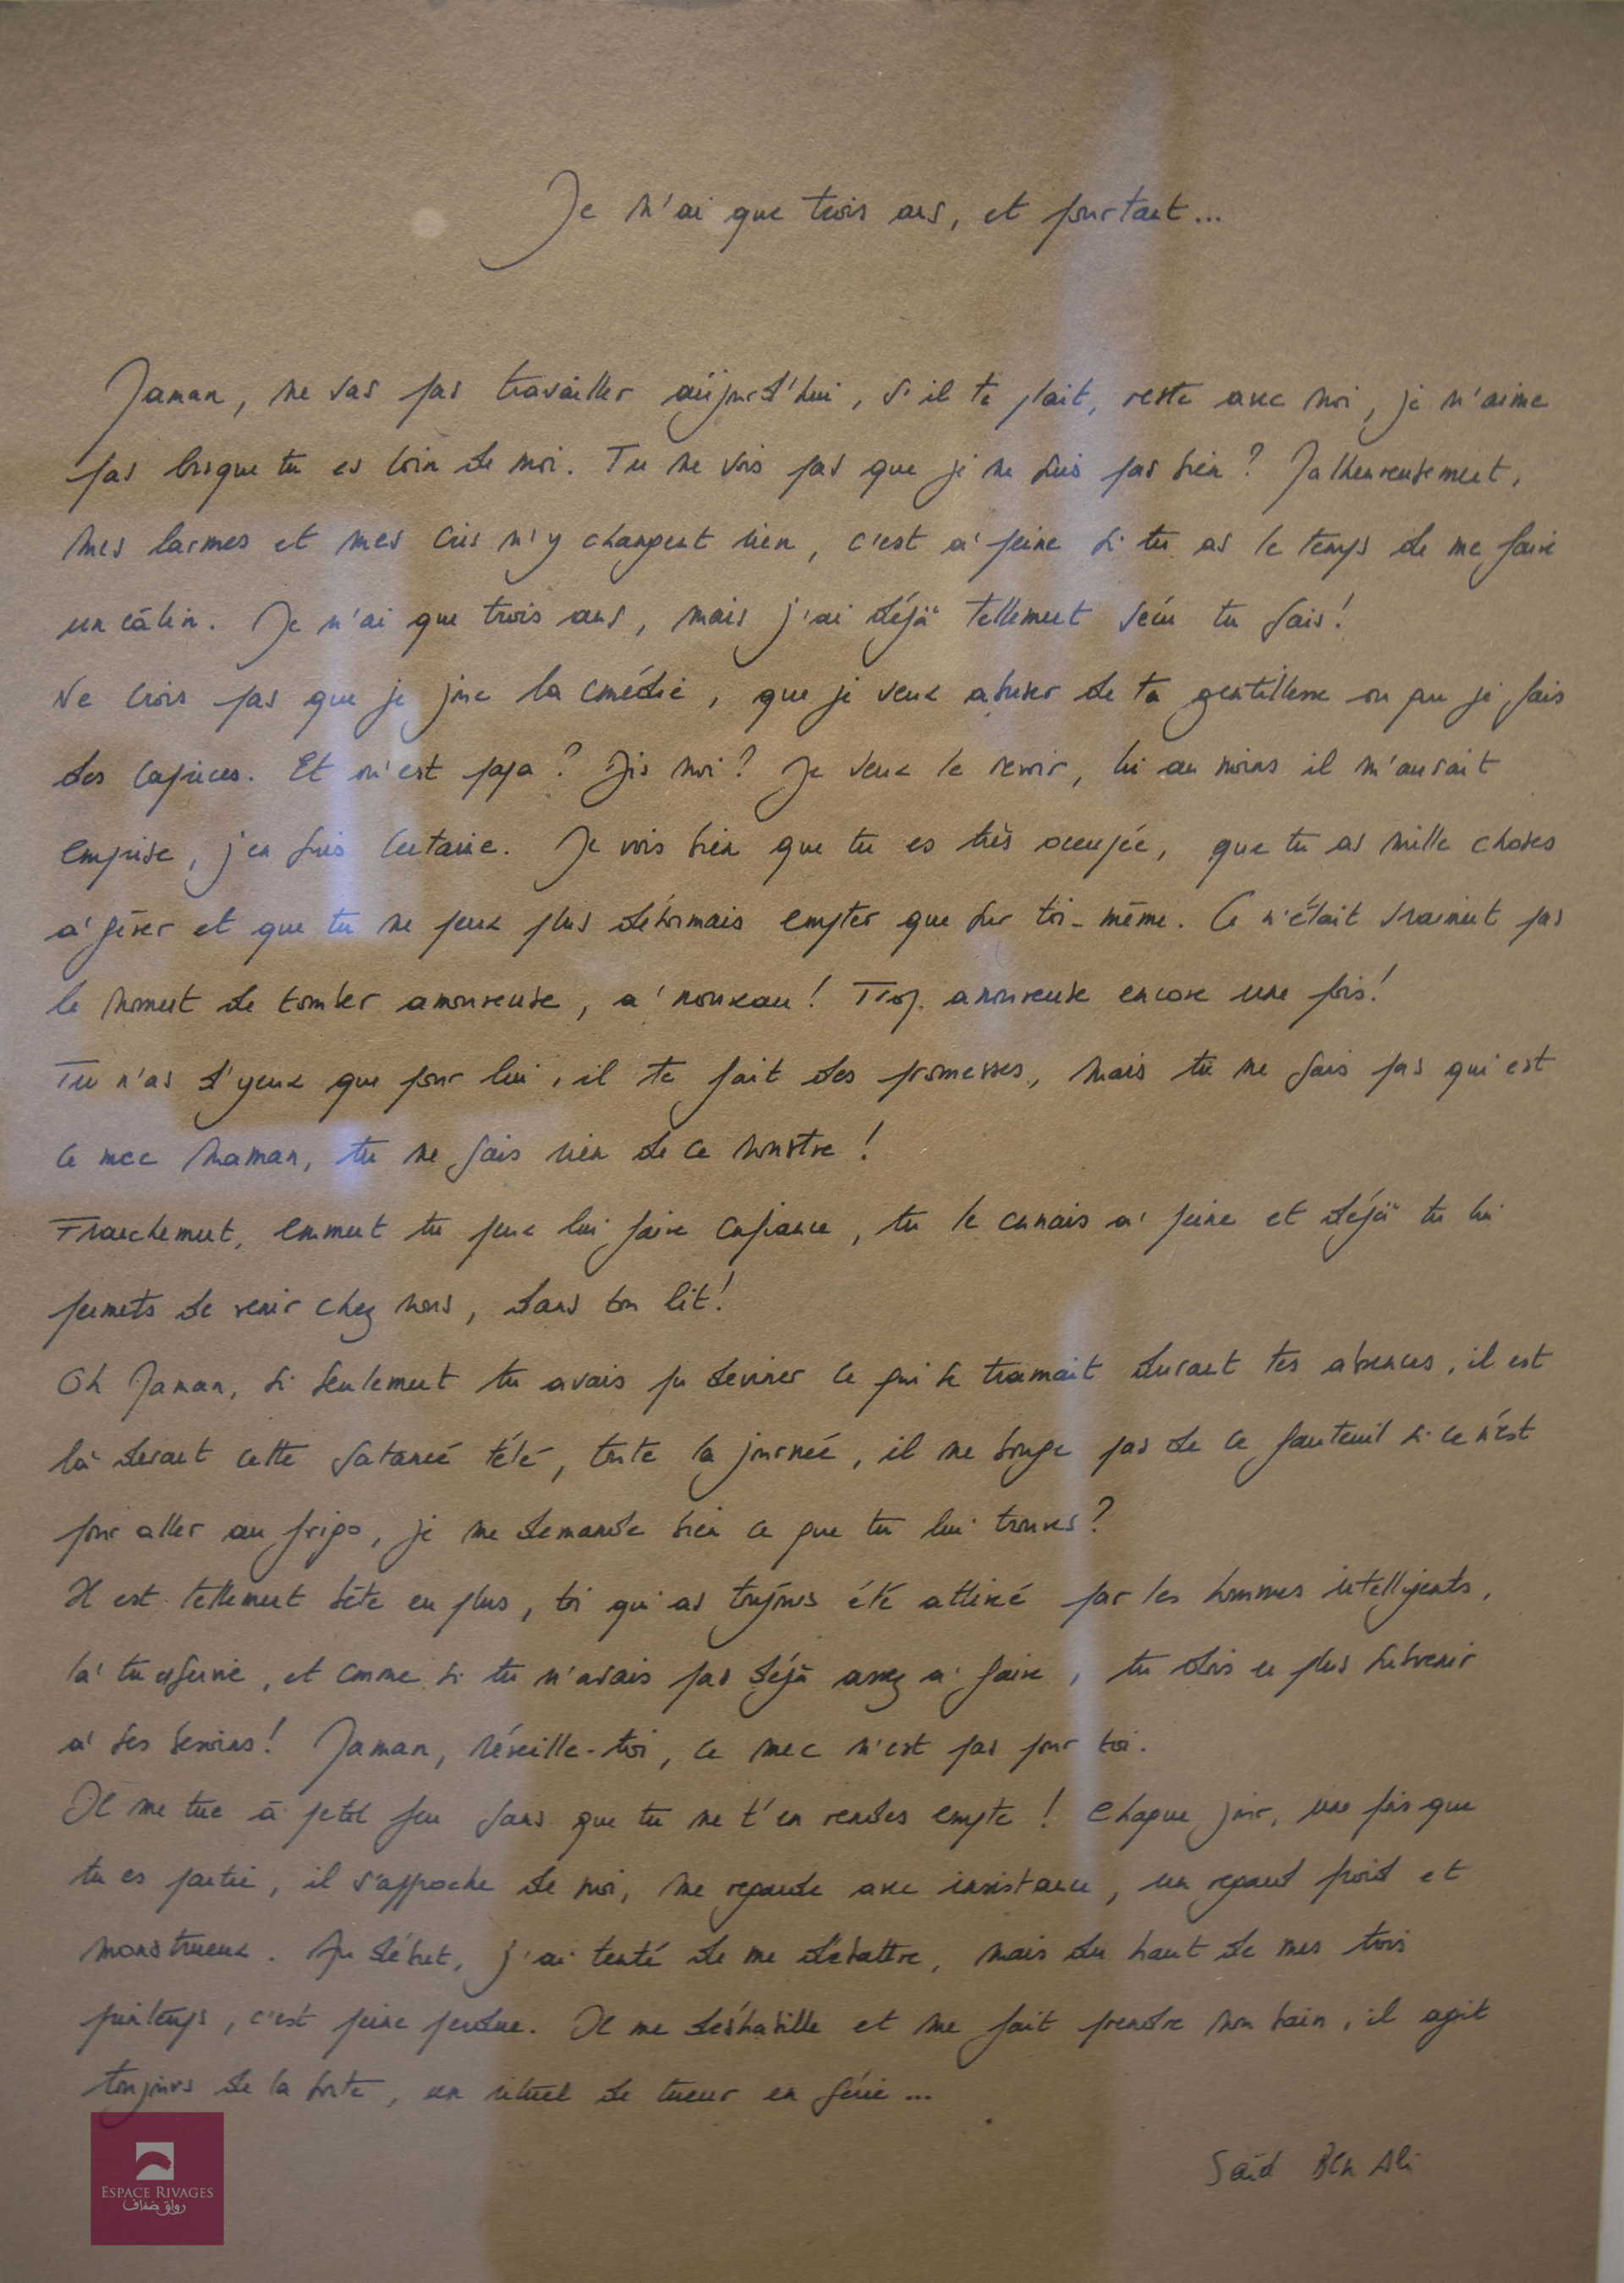 Je n'ai que trois ans, et pourtant...
Maman, ne vas pas travailler aujourd'hui, s'il te plait, reste avec moi, je n'aime
pas lorsque tu es loin de moi. Tu ne vois pas que je ne suis pas bien ? Malheureusement,
mes larmes et mes cris n'y changent rien, c'est à peine si tu as le temps de me faire
un câlin. Je n'ai que trois ans, mais j'ai déjà tellement vécu tu sais !
Ne crois pas que je joue la comédie, que je veux abuser de ta gentillesse ou que je fais
des caprices. Et où est papa ? Dis moi ? Je veux le revoir, lui au moins il m'aurait
comprise, j'en suis certaine. Je vois bien que tu es très occupée, que tu as mille choses
à gérer et que tu ne peux plus désormais compter que sur toi-même. Ce n'était vraiment pas
le moment de tomber amoureuse, à nouveau ! Trop amoureuse encore une fois !
Tu n'as d'yeux que pour lui, il te fait des promesses, mais tu ne sais pas qui est
ce mec maman, tu ne sais rien de ce monstre !
Franchement, comment tu peux lui faire confiance, tu le connais à peine et déjà tu lui
permets de venir chez nous, dans ton lit !
Oh Maman, si seulement tu avais pu deviner ce qui se tramait durant tes absences, il est
là devant cette satanée télé, toute la journée, il ne bouge pas de ce fauteuil si ce n'est
pour aller au frigo, je me demande bien ce que tu lui trouves ?
Il est tellement bête en plus, toi qui as toujours été attirée par les hommes intelligents,
là tu es servie, et comme si tu n'avais pas déjà assez à faire, tu dois en plus subvenir
à ses besoins ! Maman, réveille-toi, ce mec n'est pas pour toi.
Il me tue à petit feu sans que tu ne t'en rendes compte ! Chaque jour, une fois que
tu es partie, il s'approche de moi, me regarde avec insistance, un regard froid et
monstrueux. Au début, j'ai tenté de me débattre, mais du haut de mes trois
printemps, c'est peine perdue. Il me déshabille et me fait prendre mon bain, il agit
toujours de la sorte, un rituel de tueur en série...
Saïd Ben Ali
ESPACE RIVAGES
رواق ضفاف